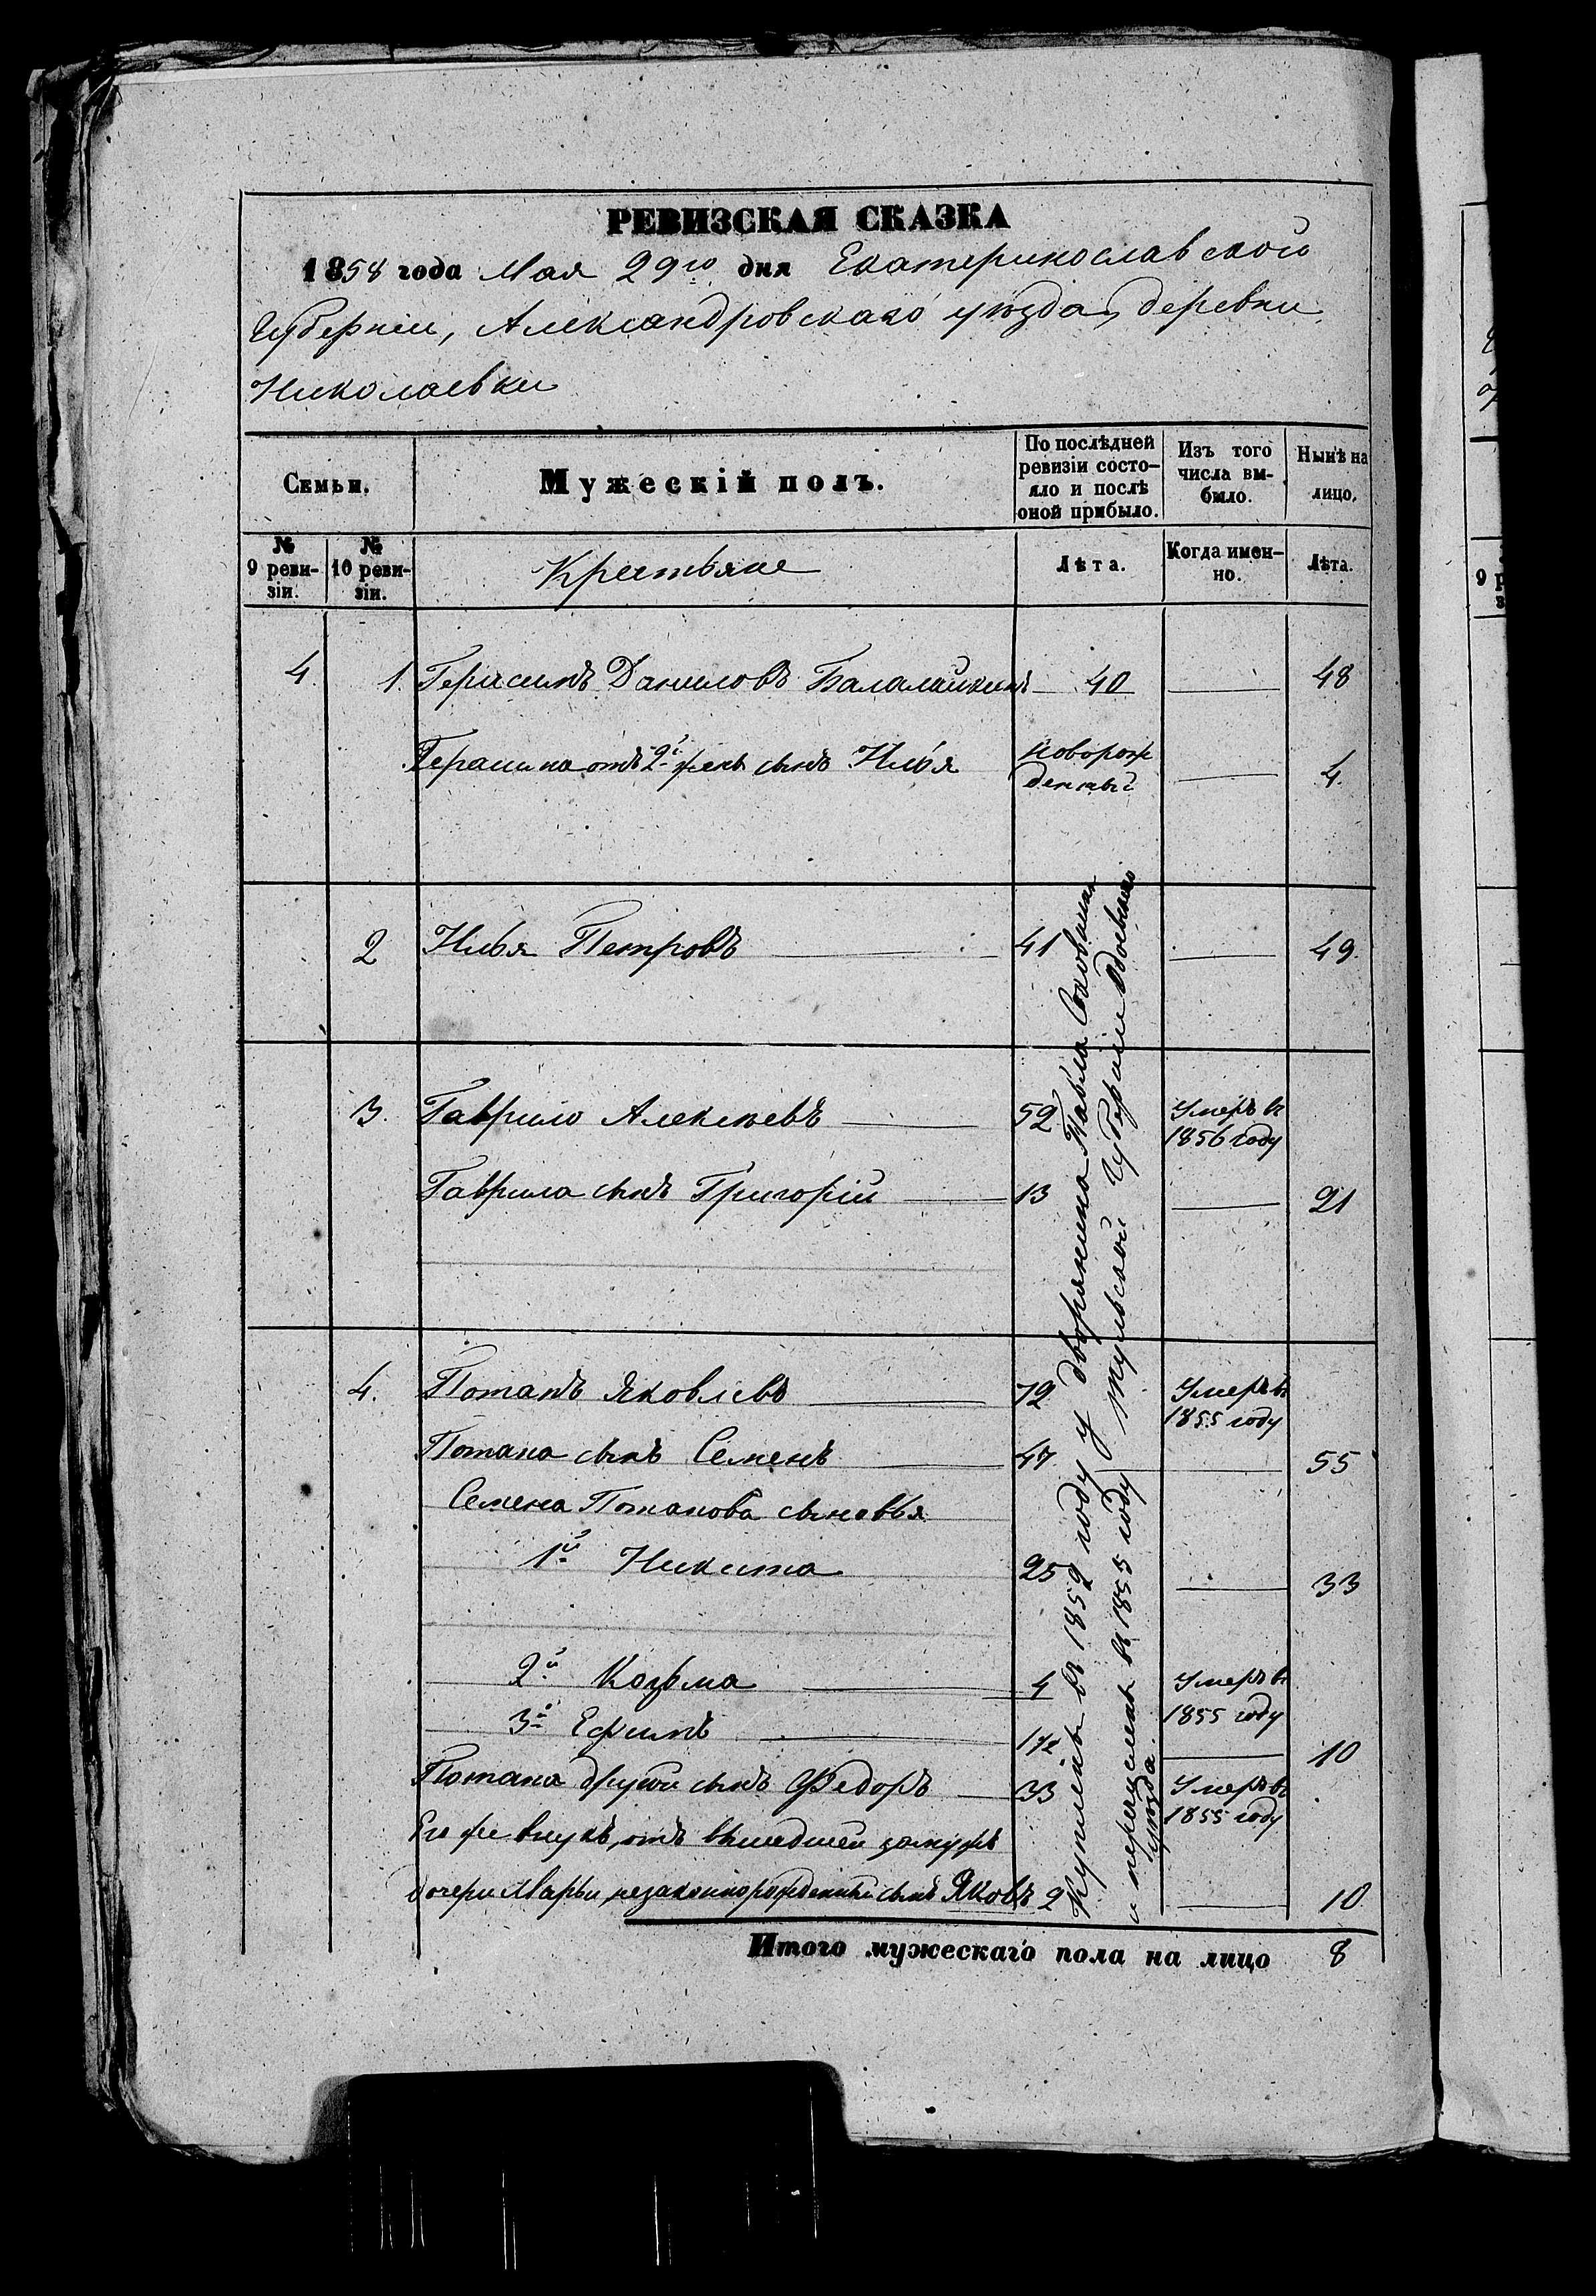 РЕВИЗСКАЯ СКАЗКА
1858 года Мая 29го дня Екатеринославской
Губерніи, Александровскаго уѣзда, деревни
Николаевки
Семьи.
Мужескій полъ.
По послѣдней
ревизіи состо-
яло и послѣ
оной прибыло.
Изъ того
числа вы-
было.
Нынѣ на
лицо.
№
9 реви-
зіи.
№
10 реви-
зіи.
Крестьяне
Лѣта.
Когда имен-
но.
Лѣта.
4. 1. Герасимъ Даниловъ Балалайкинъ 40 48
Герасима отъ 2й жены сынъ Илья новорож
денный 4.
2 Илья Петровъ 41 49.
3. Гаврило Алексѣевъ 52 Умеръ въ
1856 году
Гаврила сынъ Григорій 13 21
4. Потапъ Яковлевъ 72 Умеръ въ
1855 году
Потапа сынъ Семенъ 47 55
Семена Потапова сыновья
1й Никита 25 33
2й Козьма 4 Умеръ въ
1855 году
3й Ефимъ 1½ 10
Потапа другой сынъ Федоръ 33 Умеръ въ
1855 году
Его же внукъ, отъ вышедшей замужъ
дочери Марьи, незаконнорожденный сынъ Яковъ 2 10
Куплены въ 1852 году у дворянина Павла
и перечислены въ 1855 году Тульской Губерніи Одоевскаго
уѣзда.
Итого мужескаго пола на лицо 8
9 р
з